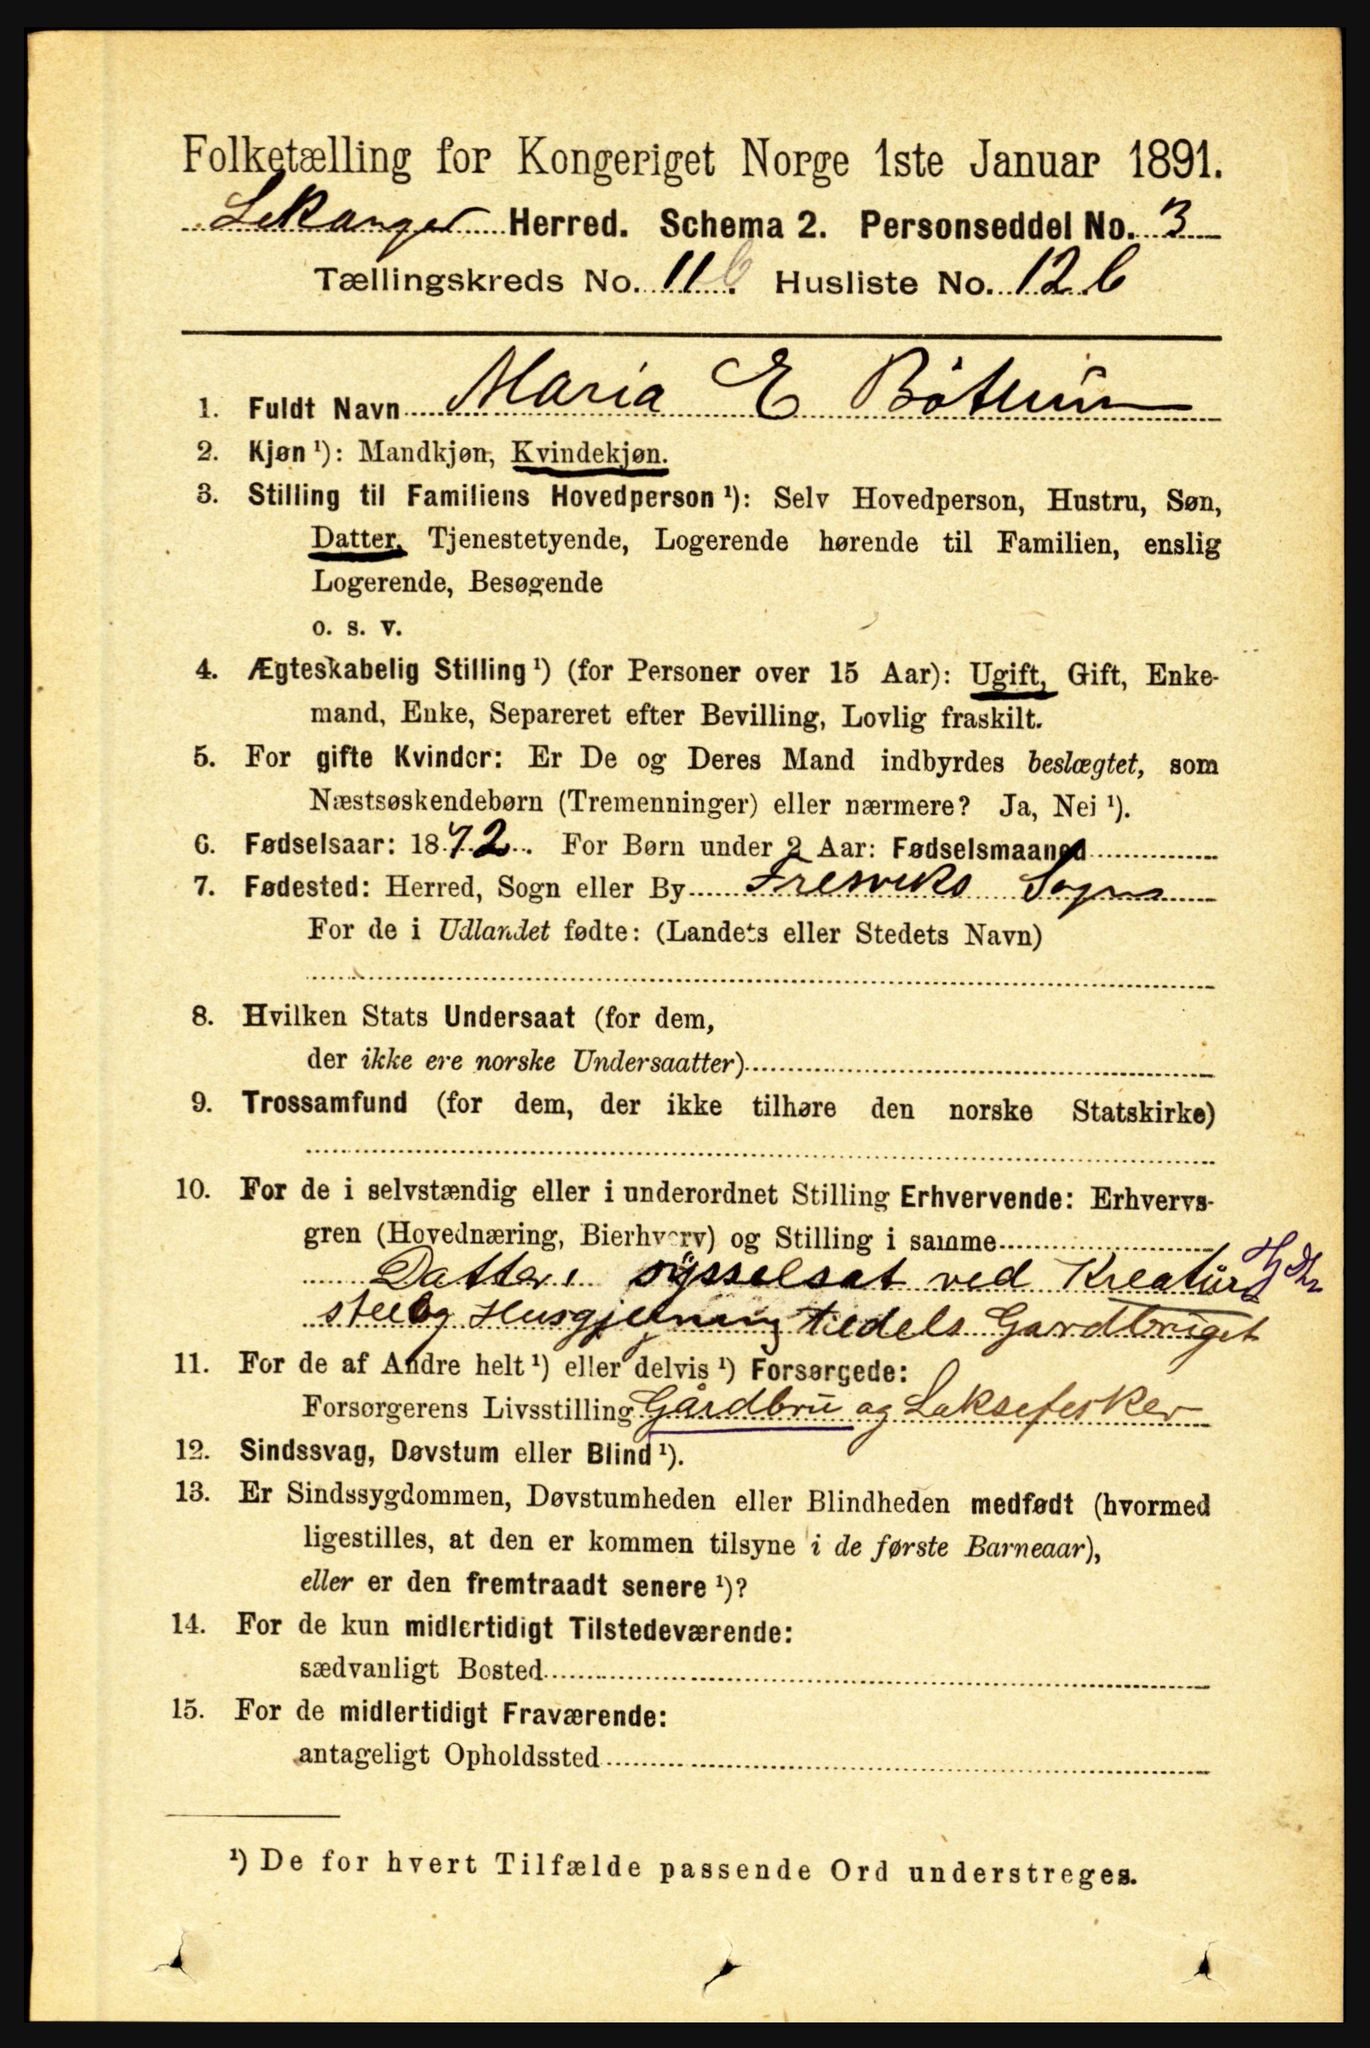 Folketælling for Kongeriget Norge 1ste Januar 1891.
Lekanger Herred. Schema 2. Personseddel No. 3
Tællingskreds No. 11b. Husliste No. 12b
1. Fuldt Navn Maria E Bøtun
2. Kjøn ¹): Mandkjøn, Kvindekjøn.
3. Stilling til Familiens Hovedperson ¹): Selv Hovedperson, Hustru, Søn,
Datter, Tjenestetyende, Logerende hørende til Familien, enslig
Logerende, Besøgende
o. s. v.
4. Ægteskabelig Stilling ¹) (for Personer over 15 Aar): Ugift, Gift, Enke-
mand, Enke, Separeret efter Bevilling, Lovlig fraskilt.
5. For gifte Kvinder: Er De og Deres Mand indbyrdes beslægtet, som
Næstsøskendebørn (Tremenninger) eller nærmere? Ja, Nei ¹).
6. Fødselsaar: 1872. For Børn under 2 Aar: Fødselsmaaned
7. Fødested: Herred, Sogn eller By Fresviks Sogn
For de i Udlandet fødte: (Landets eller Stedets Navn)
8. Hvilken Stats Undersaat (for dem,
der ikke ere norske Undersaatter)
9. Trossamfund (for dem, der ikke tilhøre den norske Statskirke)
10. For de i selvstændig eller i underordnet Stilling Erhvervende: Erhvervs-
gren (Hovednæring, Bierhverv) og Stilling i samme
Datter, sysselsat ved Kreatur
stel og Husgjerning tildels Gardbruget
11. For de af Andre helt ¹) eller delvis ¹) Forsørgede:
Forsørgerens Livsstilling Gårdbru og Laksefisker
12. Sindssvag, Døvstum eller Blind ¹).
13. Er Sindssygdommen, Døvstumheden eller Blindheden medfødt (hvormed
ligestilles, at den er kommen tilsyne i de første Barneaar),
eller er den fremtraadt senere ¹)?
14. For de kun midlertidigt Tilstedeværende:
sædvanligt Bosted
15. For de midlertidigt Fraværende:
antageligt Opholdssted
¹) De for hvert Tilfælde passende Ord understreges.